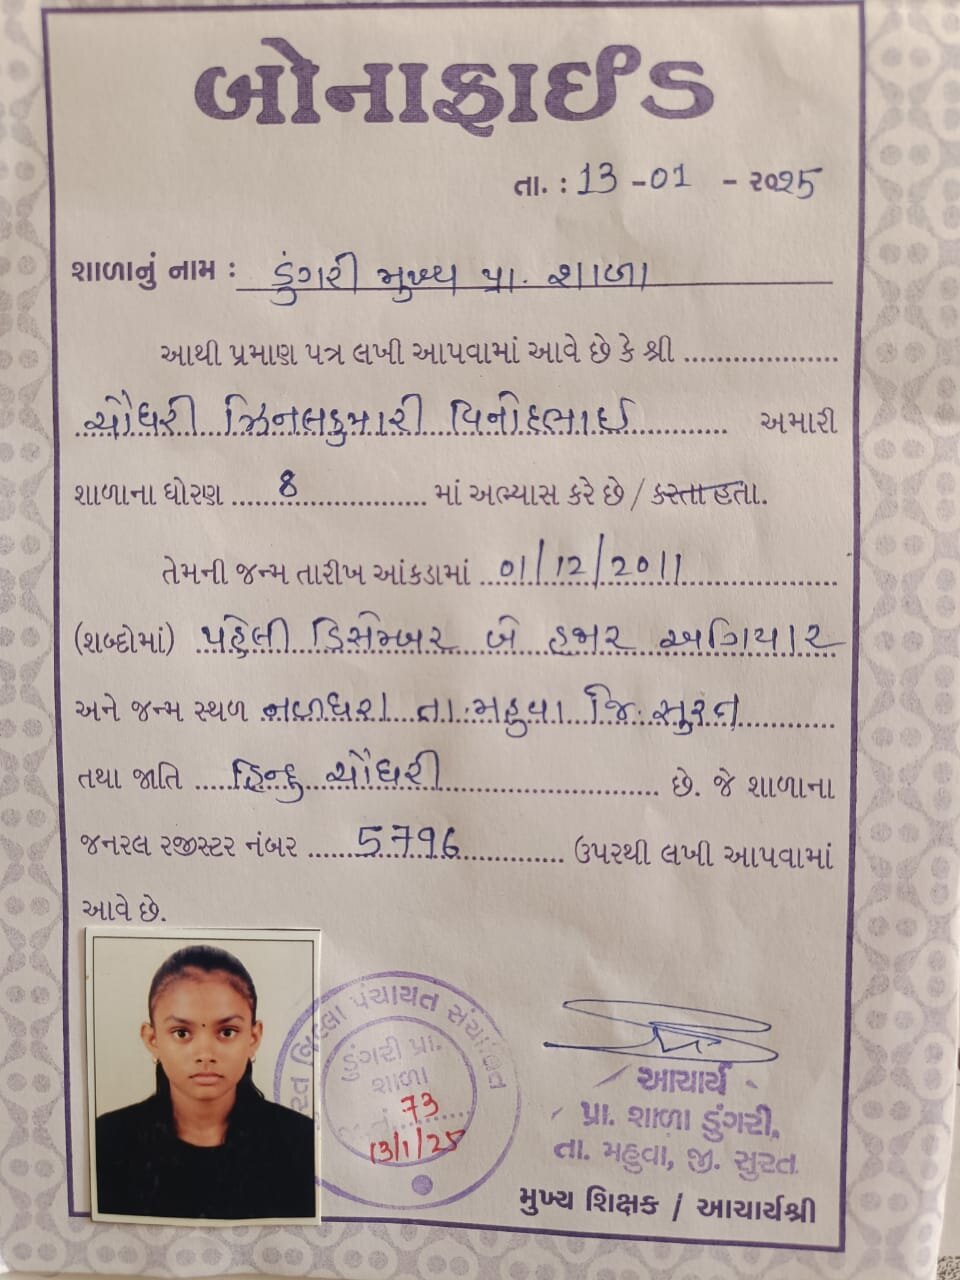 બોનાફાઈડ
તા. : 13 - 01 - ૨૦25
શાળાનું નામ : ડુંગરી મુખ્ય પ્રા. શાળા
આથી પ્રમાણ પત્ર લખી આપવામાં આવે છે કે શ્રી ..................
ચૌધરી ઝિનલકુમારી વિનોદભાઈ અમારી
શાળાના ધોરણ 8 માં અભ્યાસ કરે છે / કરતા હતા.
તેમની જન્મ તારીખ આંકડામાં 01/12/2011
(શબ્દોમાં) પહેલી ડિસેમ્બર બે હજાર અગિયાર
અને જન્મ સ્થળ નળધરા તા. મહુવા જિ. સુરત
તથા જાતિ હિન્દુ ચૌધરી છે. જે શાળાના
જનરલ રજીસ્ટર નંબર 5796 ઉપરથી લખી આપવામાં
આવે છે.
જિલ્લા પંચાયત સંચાલિત
ડુંગરી પ્રા.
શાળા
73
13/1/25
આચાર્ય
પ્રા. શાળા ડુંગરી,
તા. મહુવા, જી. સુરત
મુખ્ય શિક્ષક / આચાર્યશ્રી